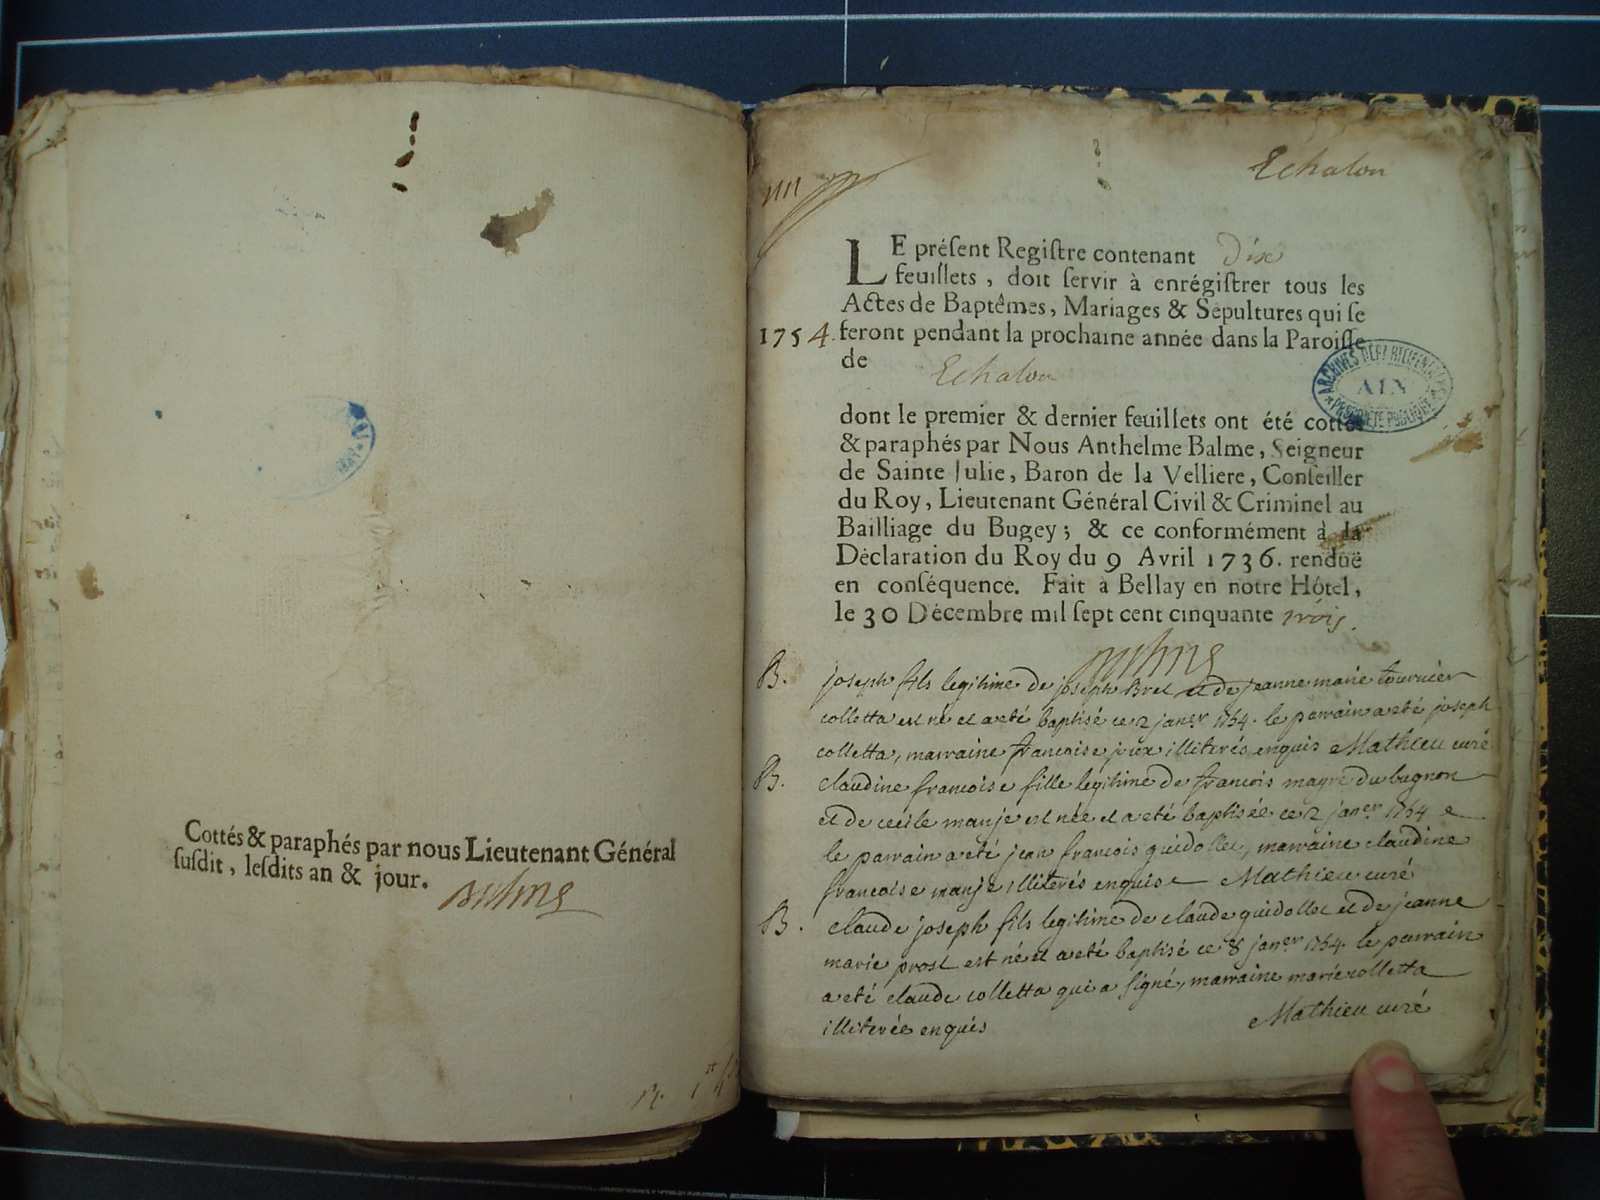 Cottés & paraphés par nous Lieutenant Général
susdit, lesdits an & jour.
Echalon
LE présent Registre contenant Dix
feuillets, doit servir à enrégistrer tous les
Actes de Baptêmes, Mariages & Sépultures qui se
1754. feront pendant la prochaine année dans la Paroisse
de
Echalon
ARCHIVES DÉPARTEMENTALES
AIN
PROPRIÉTÉ PUBLIQUE
dont le premier & dernier feuillets ont été cottés
& paraphés par Nous Anthelme Balme, Seigneur
de Sainte Julie, Baron de la Velliere, Conseiller
du Roy, Lieutenant Général Civil & Criminel au
Bailliage du Bugey; & ce conformément à la
Déclaration du Roy du 9 Avril 1736. renduë
en conséquence. Fait à Bellay en notre Hôtel,
le 30 Décembre mil sept cent cinquante trois.
B. joseph fils legitime de joseph Bret et de jeanne marie tournier
colletta est né et a eté baptisé ce 2 janer 1754. le parrain a eté joseph
colletta, marraine francoise illiterés enquis Mathieu curé
B. claudine francoise fille legitime de francois du bugnon
et de cecile manje est née et a eté baptisée ce 2 janer 1754
le parrain a eté jean francois guidollet, marraine claudine
francoise manje illiterés enquis Mathieu curé
B. claude joseph fils legitime de claude guidollet et de jeanne
marie prost est né et a eté baptisé ce 8 janer 1754. le parrain
a eté claude colletta qui a signé, marraine marie colletta
illiterée enquis Mathieu curé